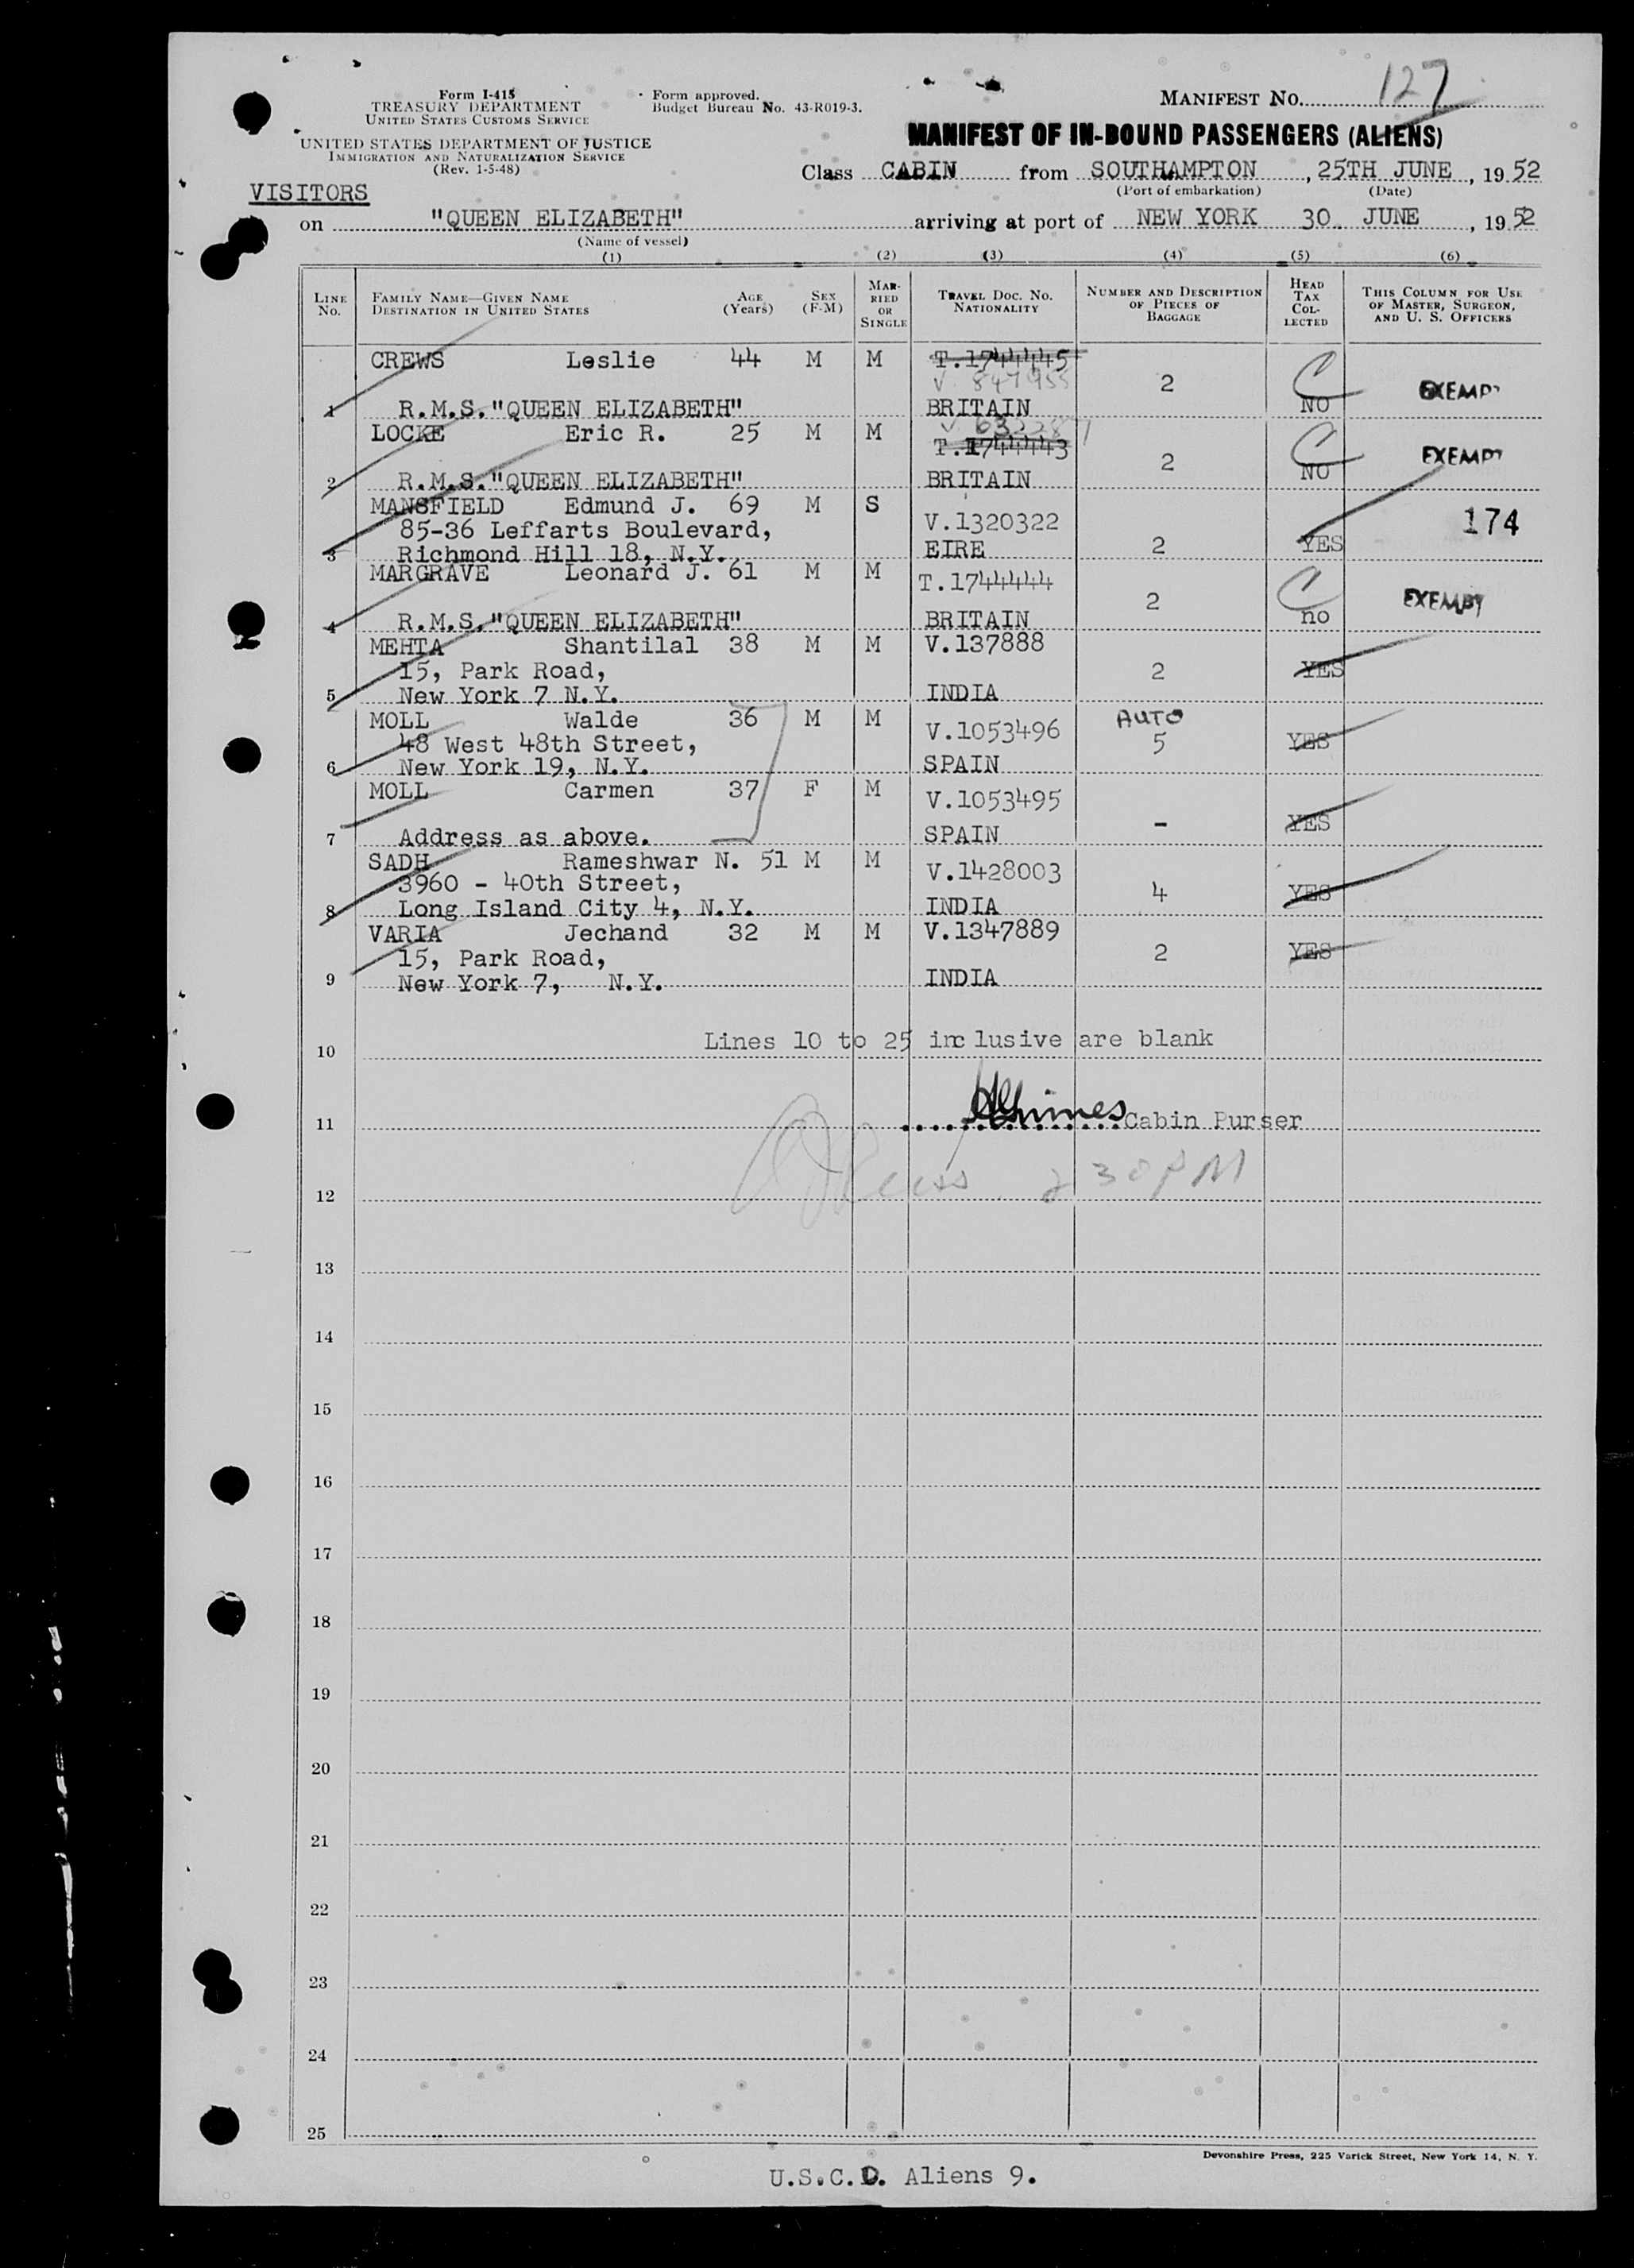 Form I-415
TREASURY DEPARTMENT
UNITED STATES CUSTOMS SERVICE
Form approved.
Budget Bureau No. 43-R019-3.
MANIFEST NO. 127
UNITED STATES DEPARTMENT OF JUSTICE
IMMIGRATION AND NATURALIZATION SERVICE
(Rev. 1-5-48)
MANIFEST OF IN-BOUND PASSENGERS (ALIENS)
Class CABIN from SOUTHAMPTON, 25TH JUNE, 1952
(Port of embarkation) (Date)
VISITORS
on "QUEEN ELIZABETH" arriving at port of NEW YORK 30 JUNE, 1952
(Name of vessel)
(1) (2) (3) (4) (5) (6)
LINE NO. FAMILY NAME—GIVEN NAME DESTINATION IN UNITED STATES AGE (Years) SEX (F-M) MARRIED OR SINGLE TRAVEL DOC. NO. NATIONALITY NUMBER AND DESCRIPTION OF PIECES OF BAGGAGE HEAD TAX COLLECTED THIS COLUMN FOR USE OF MASTER, SURGEON, AND U. S. OFFICERS
CREWS Leslie 44 M M T.1744445
2 C EXEMPT
1 R.M.S."QUEEN ELIZABETH" BRITAIN NO
LOCKE Eric R. 25 M M T.1744443
2 C EXEMPT
2 R.M.S."QUEEN ELIZABETH" BRITAIN NO
MANSFIELD Edmund J. 69 M S V.1320322 174
85-36 Leffarts Boulevard,
3 Richmond Hill 18, N.Y. EIRE 2 YES
MARGRAVE Leonard J. 61 M M T.1744444
2 C EXEMPT
4 R.M.S."QUEEN ELIZABETH" BRITAIN no
MEHTA Shantilal 38 M M V.137888
15, Park Road, 2 YES
5 New York 7 N.Y. INDIA
MOLL Walde 36 M M V.1053496 AUTO
48 West 48th Street, 5 YES
6 New York 19, N.Y. SPAIN
MOLL Carmen 37 F M V.1053495
- YES
7 Address as above. SPAIN
SADH Rameshwar N. 51 M M V.1428003
3960 - 40th Street, 4 YES
8 Long Island City 4, N.Y. INDIA
VARIA Jechand 32 M M V.1347889
15, Park Road, 2 YES
9 New York 7, N.Y. INDIA
10 Lines 10 to 25 inclusive are blank
11 Cabin Purser
230PM
12
13
14
15
16
17
18
19
20
21
22
23
24
25
Devonshire Press, 225 Varick Street, New York 14, N. Y.
U.S.C.D. Aliens 9.